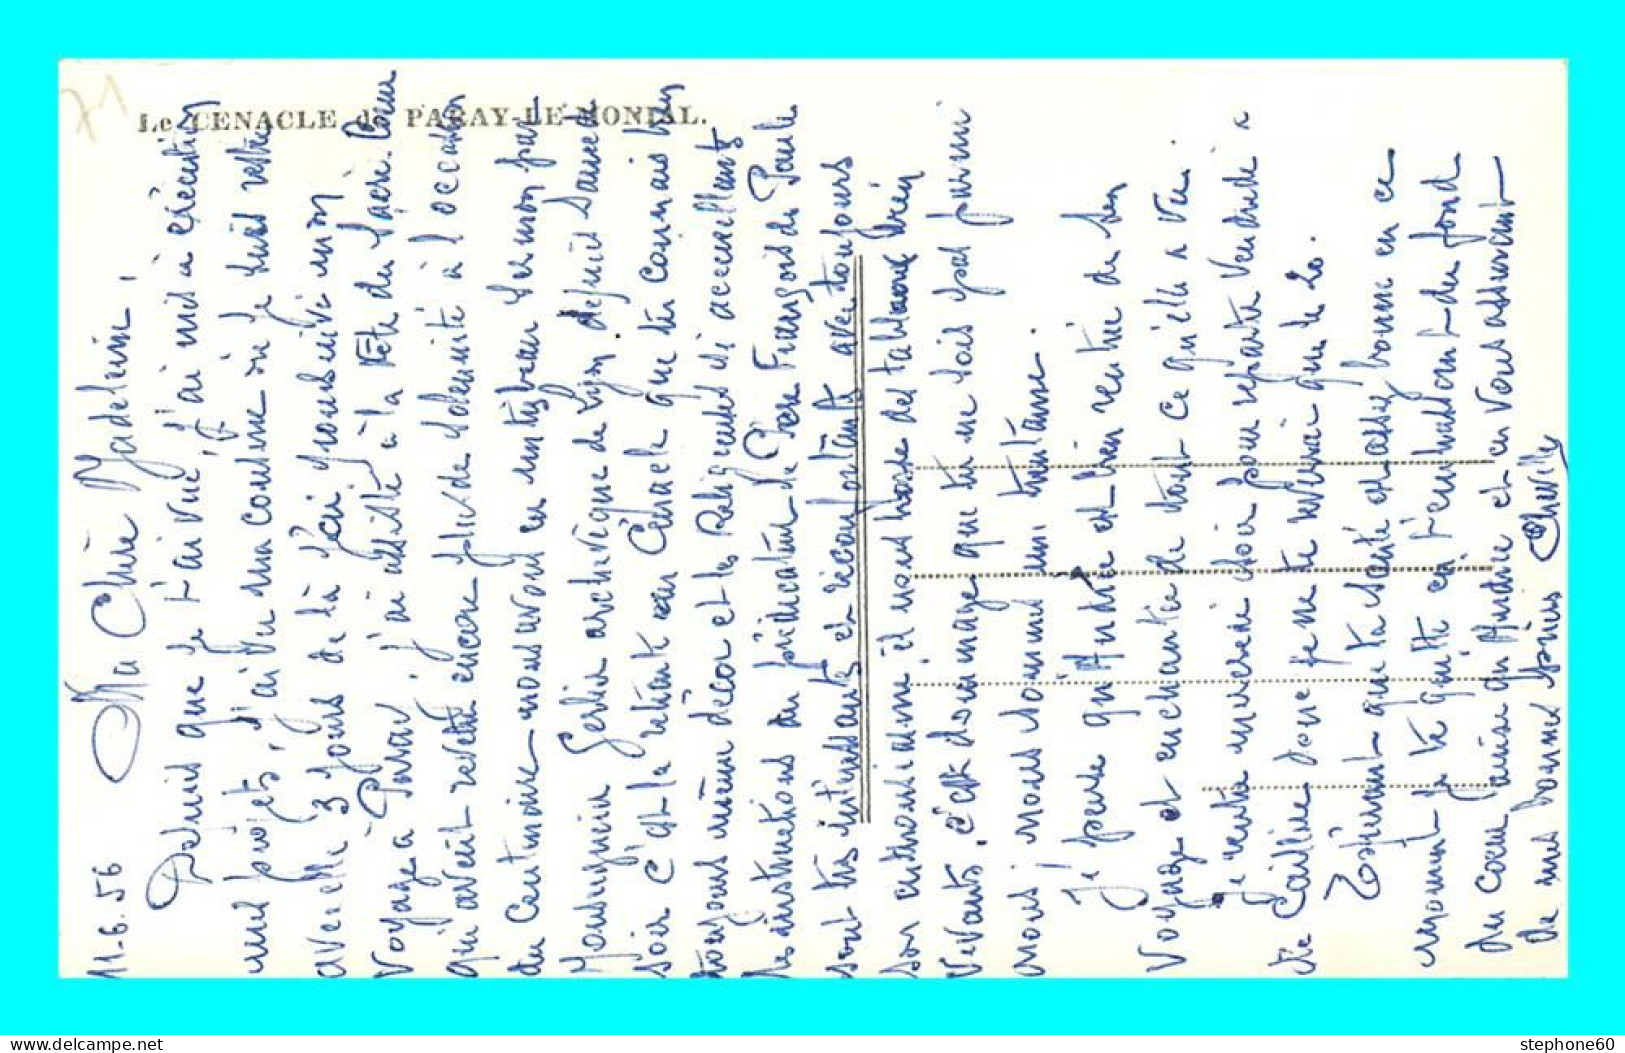 Le CENACLE de PARAY-LE-MONIAL.
71
11-6.56 Ma Chère Madeleine,
Depuis que je t'ai vue, j'ai mis à exécution
mes projets, j'ai vu ma cousine où je suis restée
avec elle 3 jours de là j'ai poursuivi mon
voyage à Paray, j'ai assisté à la Fête du Sacré-Cœur
qui avait revêtu encore plus de solennité à l'occasion
du Centenaire nous avons eu un très beau sermon par
Monseigneur Gerlier archevêque de Lyon depuis Samedi
soir c'est la retraite au Cénacle que tu connais bien
toujours même décor et les Religieuses si accueillantes
les instructions du prédicateur le Père François de Paule
sont très intéressantes et réconfortantes avec toujours
son enthousiasme il nous brosse des tableaux bien
vivants. C'est dommage que tu ne sois pas parmi
nous, nous sommes une trentaine.
Je pense qu'Andrée est bien rentrée de son
voyage et enchantée de tout ce qu'elle a vu.
Je rentre mercredi soir pour repartir vendredi à
Ste Catherine donc je ne te verrai que le 20.
Espérant que ta santé est assez bonne en ce
moment je te quitte en t'embrassant du fond
du cœur ainsi qu'Andrée et en vous assurant
de mes bonnes prières Cheville
stephone60